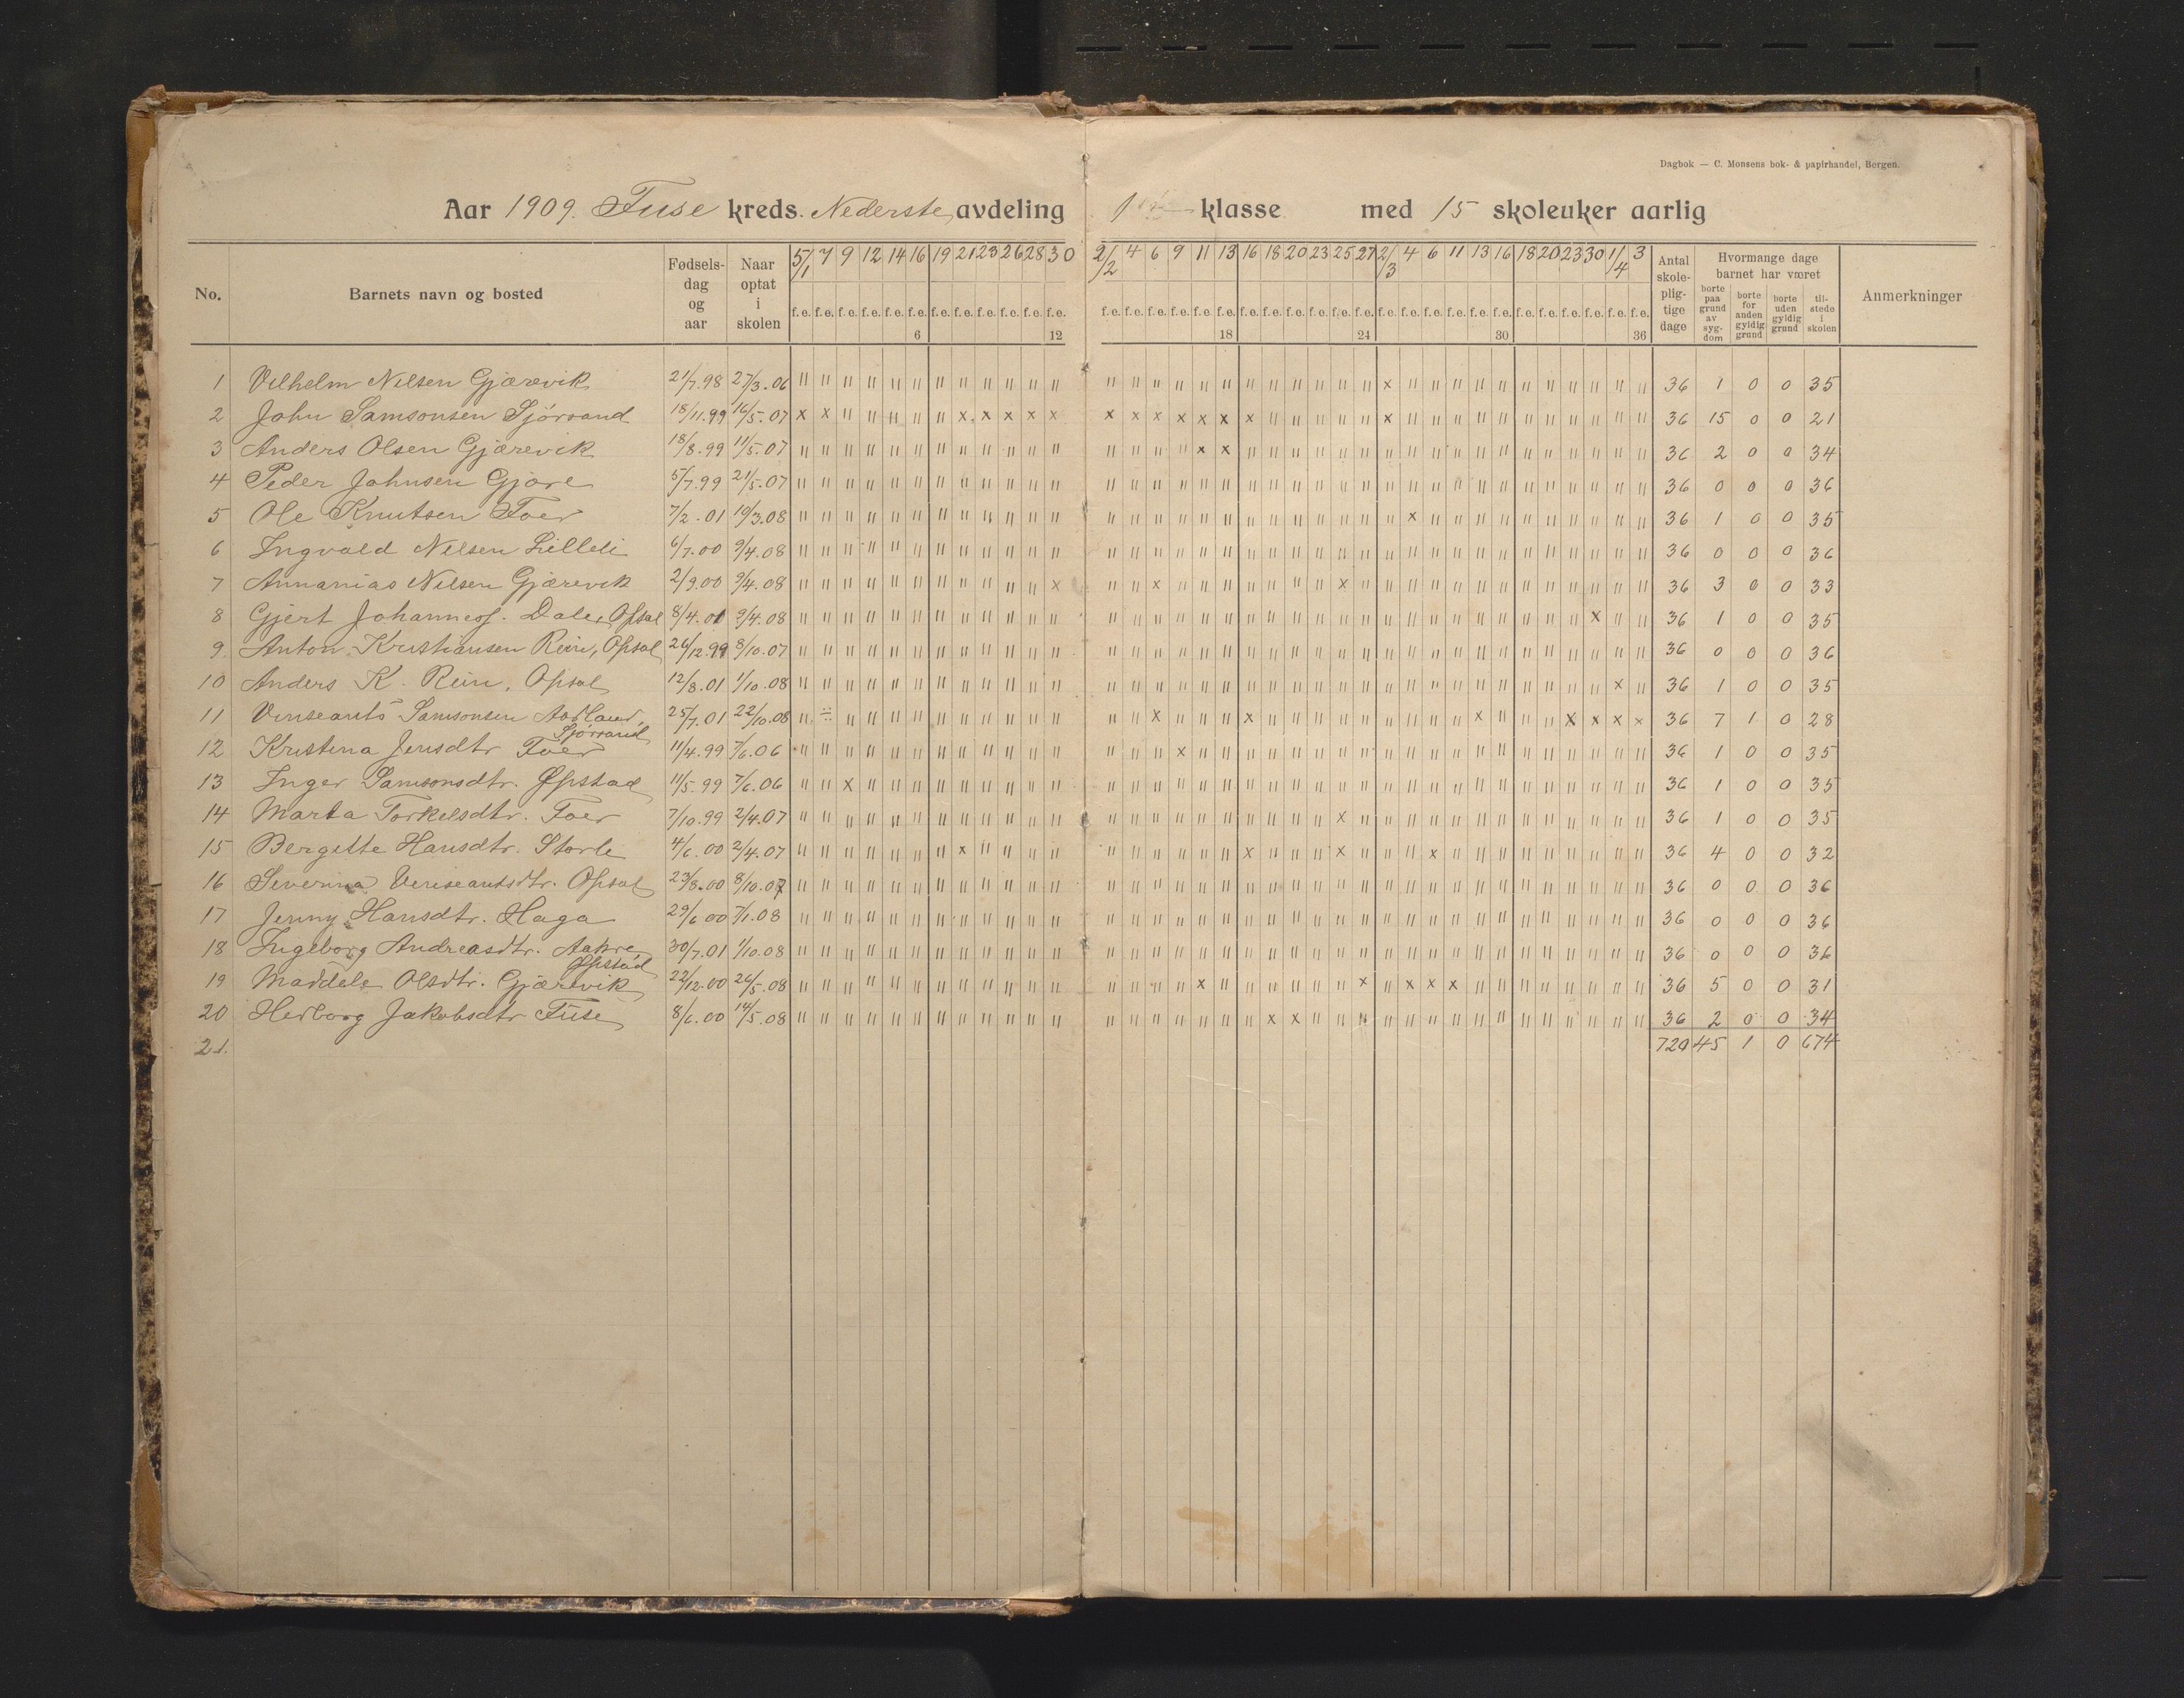 Dagbok — C. Monsens bok- & papirhandel, Bergen.
Aar 1909. Fuse kreds. Nederste avdeling 1 klasse med 15 skoleuker aarlig
No. Barnets navn og bosted Fødsels-dag og aar Naar optat i skolen 5/1 7 9 12 14 16 19 21 23 26 28 30 2/2 4 6 9 11 13 16 18 20 23 25 27 2/3 4 6 11 13 16 18 20 23 30 1/4 3 Antal skole-plig-tige dage Hvormange dage barnet har været Anmerkninger
borte paa grund av syg-dom borte for anden gyldig grund borte uden gyldig grund til-stede i skolen
f.e. f.e. f.e. f.e. f.e. f.e. f.e. f.e. f.e. f.e. f.e. f.e. f.e. f.e. f.e. f.e. f.e. f.e. f.e. f.e. f.e. f.e. f.e. f.e. f.e. f.e. f.e. f.e. f.e. f.e. f.e. f.e. f.e. f.e. f.e. f.e.
6 12 18 24 30 36
1 Vilhelm Nilsen Gjærevik 21/7.98 27/3.06 " " " " " " " " " " " " " " " " " " " " " " " " x " " " " " " " " " " " 36 1 0 0 35
2 John Samsonsen Sjörsand 18/11.99 16/5.07 x x " " " " " x x x x x x x x x x x x " " " " " x " " " " " " " " " " " 36 15 0 0 21
3 Anders Olsen Gjærevik 18/8.99 11/5.07 " " " " " " " " " " " " " " " " x x " " " " " " " " " " " " " " " " " " 36 2 0 0 34
4 Peder Johnsen Gjöre 5/7.99 21/5.07 " " " " " " " " " " " " " " " " " " " " " " " " " " " " " " " " " " " " 36 0 0 0 36
5 Ole Knutsen Foer 7/2.01 19/3.08 " " " " " " " " " " " " " " " " " " " " " " " " " x " " " " " " " " " " 36 1 0 0 35
6 Ingvald Nilsen Lilleli 6/7.00 9/4.08 " " " " " " " " " " " " " " " " " " " " " " " " " " " " " " " " " " " " 36 0 0 0 36
7 Annanias Nilsen Gjærevik 2/9.00 9/4.08 " " " " " " " " " " " x " " x " " " " " " " x " " " " " " " " " " " " " 36 3 0 0 33
8 Gjert Johannesf. Dale, Opsal 8/4.01 9/4.08 " " " " " " " " " " " " " " " " " " " " " " " " " " " " " " " " " x " " 36 1 0 0 35
9. Anton Kristiansen Rein, Opsal 26/12.99 8/10.07 " " " " " " " " " " " " " " " " " " " " " " " " " " " " " " " " " " " " 36 0 0 0 36
10 Anders K. Rein, Opsal 12/8.01 1/10.08 " " " " " " " " " " " " " " " " " " " " " " " " " " " " " " " " " " x " 36 1 0 0 35
11 Vinseants Samsonsen Aadland, 25/7.01 22/10.08 " ÷ " " " " " " " " " " " " x " " " x " " " " " " " " " x " " " x x x x 36 7 1 0 28
Sjörsand
12 Kristina Jensdtr Foer 11/4.99 7/6.06 " " " " " " " " " " " " " " " x " " " " " " " " " " " " " " " " " " " " 36 1 0 0 35
13 Inger Samsonsdtr. Øpstad 11/5.99 7/6.06 " " x " " " " " " " " " " " " " " " " " " " " " " " " " " " " " " " " " 36 1 0 0 35
14 Marta Torkelsdtr. Foer 7/10.99 2/4.07 " " " " " " " " " " " " " " " " " " " " " " x " " " " " " " " " " " " " 36 1 0 0 35
15 Bergitte Hansdtr. Storli 4/6.00 2/4.07 " " " " " " " x " " " " " " " " " " x " " " x " " " x " " " " " " " " " 36 4 0 0 32
16 Severina Venseantsdtr. Opsal 23/8.00 8/10.07 " " " " " " " " " " " " " " " " " " " " " " " " " " " " " " " " " " " " 36 0 0 0 36
17 Jenny Hansdtr. Haga 29/6 00 7/1.08 " " " " " " " " " " " " " " " " " " " " " " " " " " " " " " " " " " " " 36 0 0 0 36
18 Ingeborg Andreasdtr. Aakre 30/7.01 1/10.08 " " " " " " " " " " " " " " " " " " " " " " " " " " " " " " " " " " " " 36 0 0 0 36
Øpstad
19 Maddele Olsdtr. Gjærevik 22/12.00 26/5.08 " " " " " " " " " " " " " " " " x " " " " " " x " x x x " " " " " " " " 36 5 0 0 31
20 Herborg Jakobsdtr Fuse 8/6.00 14/5.08 " " " " " " " " " " " " " " " " " " " x x " " " " " " " " " " " " " " " 36 2 0 0 34
21. 720 45 1 0 674